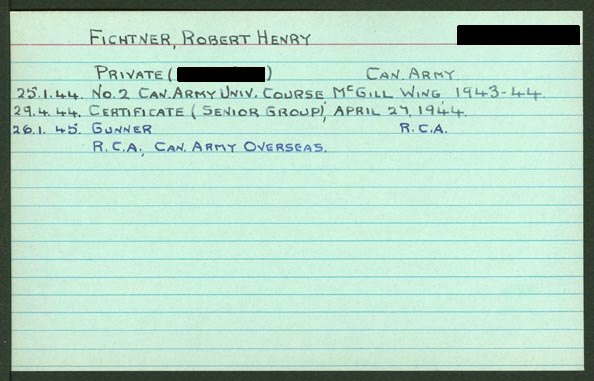 FICHTNER, ROBERT HENRY
PRIVATE ( ) CAN. ARMY.
25.1.44. NO. 2 CAN. ARMY UNIV. COURSE MCGILL WING 1943-44.
29.4.44. CERTIFICATE (SENIOR GROUP), APRIL 27, 1944.
26.1.45. GUNNER R.C.A.
R.C.A., CAN. ARMY OVERSEAS.